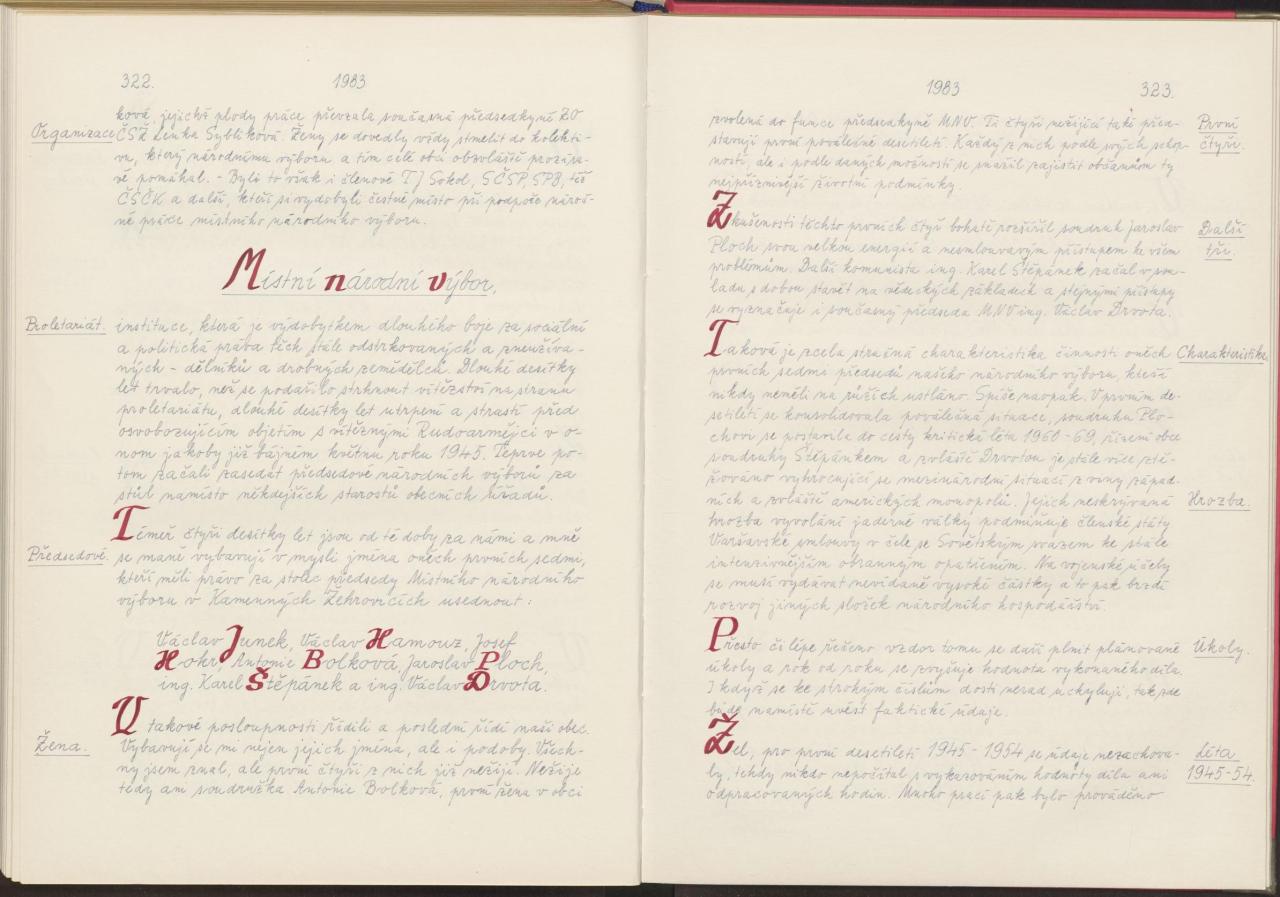 322.
1983
ková, jejichž plody práce převzala současná předsedkyně ZO
Organizace
ČSŽ Lenka Syblíková. Ženy se dovedly vždy stmelit do kolekti-
vu, který národnímu výboru a tím celé obci obzvláště prozíra-
vě pomáhal. - Byli to však i členové TJ Sokol, SČSP, SPB, též
ČSČK a další, kteří si vydobyli čestné místo při podpoře nároč-
né práce místního národního výboru.
Místní národní výbor,
Proletariát.
instituce, která je výdobytkem dlouhého boje za sociální
a politická práva těch stále odstrkovaných a zneužíva-
ných - dělníků a drobných zemědělců. Dlouhé desítky
let trvalo, než se podařilo strhnout vítězství na stranu
proletariátu, dlouhé desítky let utrpení a strastí před
osvobozujícím objetím s vítěznými Rudoarmějci v o-
nom jakoby již bájném květnu roku 1945. Teprve po-
tom začali zasedat předsedové národních výborů za
stůl namísto někdejších starostů obecních úřadů.
Téměř čtyři desítky let jsou od té doby za námi a mně
Předsedové.
se maně vybavují v mysli jména oněch prvních sedmi,
kteří měli právo za stolec předsedy Místního národního
výboru v Kamenných Žehrovicích usednout:
Václav Junek, Václav Hamouz, Josef
Hokr, Antonie Bolková, Jaroslav Ploch,
ing. Karel Štěpánek a ing. Václav Drvota.
V takové posloupnosti řídili a poslední řídí naši obec.
Žena.
Vybavují se mi nejen jejich jména, ale i podoby. Všech-
ny jsem znal, ale první čtyři z nich již nežijí. Nežije
tedy ani soudružka Antonie Bolková, první žena v obci
1983
323.
zvolená do funce předsedkyně MNV. Ti čtyři nežijící také před-
První
čtyři.
stavují první poválečné desetiletí. Každý z nich podle svých schop-
ností, ale i podle daných možností se snažil zajistit občanům ty
nejpříznivější životní podmínky.
Zkušenosti těchto prvních čtyř bohatě rozšířil soudruh Jaroslav
Další
tři.
Ploch svou velkou energií a nesmlouvavým přístupem ke všem
problémům. Další komunista ing. Karel Štěpánek začal v sou-
ladu s dobou stavět na vědeckých základech a stejnými přístupy
se vyznačuje i současný předseda MNV ing. Václav Drvota.
Taková je zcela stručná charakteristika činnosti oněch
Charakteristika.
prvních sedmi předsedů našeho národního výboru, kteří
nikdy neměli na růžích ustláno. Spíše naopak. V prvním de-
setiletí se konsolidovala poválečná situace, soudruhu Plo-
chovi se postavila do cesty kritická léta 1960-69, řízení obce
soudruhy Štěpánkem a zvláště Drvotou je stále více ztě-
žováno vyhrocující se mezinárodní situací z viny západ-
ních a zvláště amerických monopolů. Jejich neskrývaná
Hrozba.
hrozba vyvolání jaderné války podmiňuje členské státy
Varšavské smlouvy v čele se Sovětským svazem ke stále
intenzivnějším obranným opatřením. Na vojenské účely
se musí vydávat nevídaně vysoké částky a to pak brzdí
rozvoj jiných složek národního hospodářství.
Přesto či lépe řečeno vzdor tomu se daří plnit plánované
Úkoly.
úkoly a rok od roku se zvyšuje hodnota vykonaného díla.
I když se ke strohým číslům dosti nerad uchyluji, tak zde
bude namístě uvést faktické údaje.
Žel, pro první desetiletí 1945-1954 se údaje nezachova-
Léta
1945-54.
ly, tehdy nikdo nepočítal s vykazováním hodnoty díla ani
odpracovaných hodin. Mnoho prací pak bylo prováděno